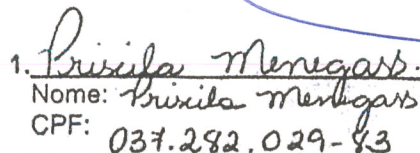 1. Priscila Menegass.
Nome: Priscila Menegass
CPF: 037.282.029-83